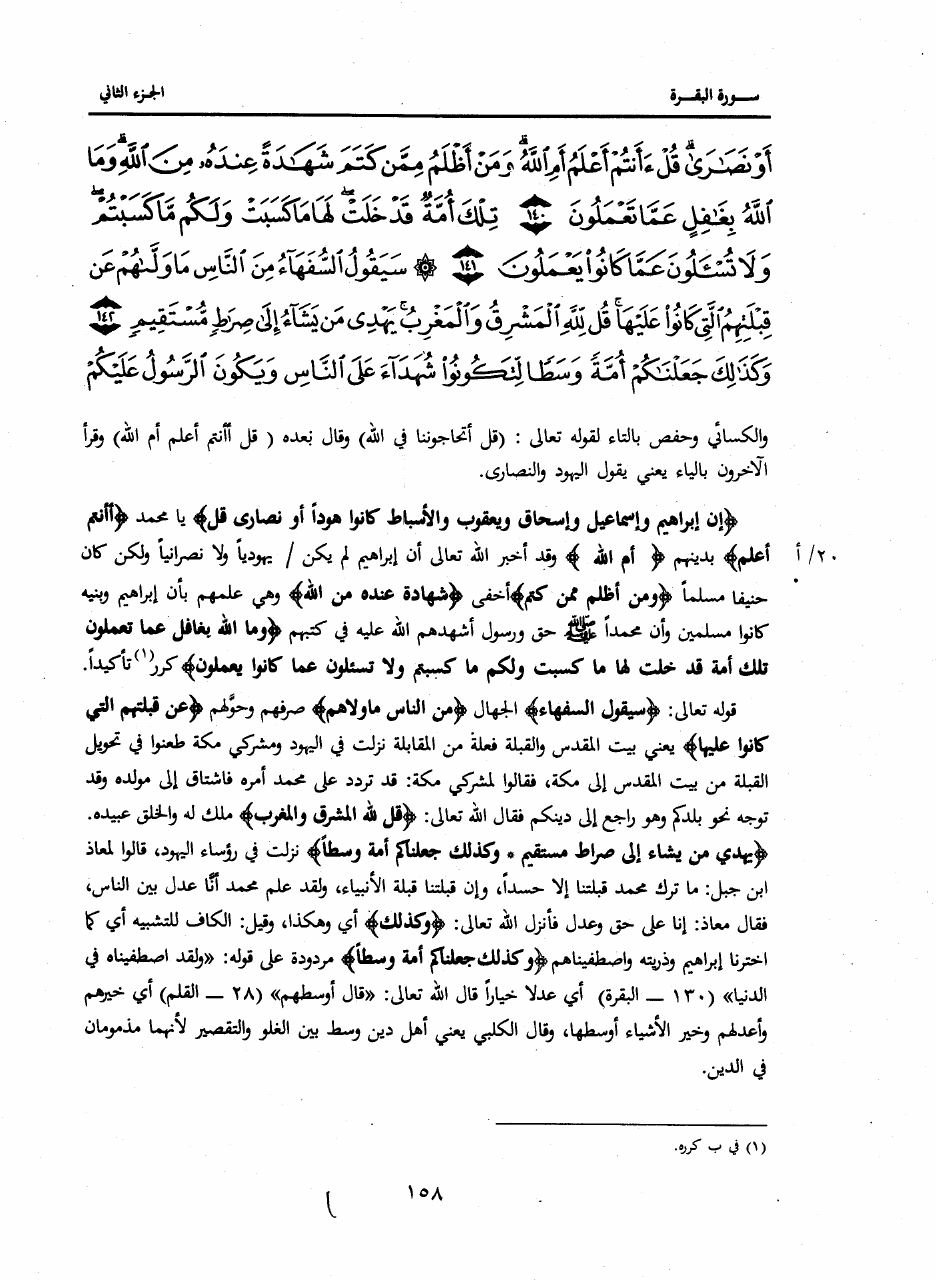 سورة البقرة
الجزء الثاني
أَوْ نَصَٰرَىٰ ۗ قُلْ ءَأَنتُمْ أَعْلَمُ أَمِ ٱللَّهُ ۗ وَمَنْ أَظْلَمُ مِمَّن كَتَمَ شَهَٰدَةً عِندَهُۥ مِنَ ٱللَّهِ ۗ وَمَا
ٱللَّهُ بِغَٰفِلٍ عَمَّا تَعْمَلُونَ ١٤٠ تِلْكَ أُمَّةٌ قَدْ خَلَتْ ۖ لَهَا مَا كَسَبَتْ وَلَكُم مَّا كَسَبْتُمْ ۖ
وَلَا تُسْـَٔلُونَ عَمَّا كَانُوا۟ يَعْمَلُونَ ١٤١ ۞ سَيَقُولُ ٱلسُّفَهَآءُ مِنَ ٱلنَّاسِ مَا وَلَّىٰهُمْ عَن
قِبْلَتِهِمُ ٱلَّتِى كَانُوا۟ عَلَيْهَا ۚ قُل لِّلَّهِ ٱلْمَشْرِقُ وَٱلْمَغْرِبُ ۚ يَهْدِى مَن يَشَآءُ إِلَىٰ صِرَٰطٍ مُّسْتَقِيمٍ ١٤٢
وَكَذَٰلِكَ جَعَلْنَٰكُمْ أُمَّةً وَسَطًا لِّتَكُونُوا۟ شُهَدَآءَ عَلَى ٱلنَّاسِ وَيَكُونَ ٱلرَّسُولُ عَلَيْكُمْ
والكسائي وحفص بالتاء لقوله تعالى : (قل أتحاجوننا في الله) وقال بعده ( قل أأنتم أعلم أم الله) وقرأ
الآخرون بالياء يعني يقول اليهود والنصارى.
﴿إن إبراهيم وإسماعيل وإسحاق ويعقوب والأسباط كانوا هوداً أو نصارى قل﴾ يا محمد ﴿أأنتم
أعلم﴾ بدينهم ﴿ أم الله ﴾ وقد أخبر الله تعالى أن إبراهيم لم يكن / يهودياً ولا نصرانياً ولكن كان
٢٠/ أ
حنيفا مسلماً ﴿ومن أظلم ممن كتم﴾ أخفى ﴿شهادة عنده من الله﴾ وهي علمهم بأن إبراهيم وبنيه
كانوا مسلمين وأن محمداً ﷺ حق ورسول أشهدهم الله عليه في كتبهم ﴿وما الله بغافل عما تعملون
تلك أمة قد خلت لها ما كسبت ولكم ما كسبتم ولا تسئلون عما كانوا يعملون﴾ كرر(١) تأكيداً.
قوله تعالى: ﴿سيقول السفهاء﴾ الجهال ﴿من الناس ماولاهم﴾ صرفهم وحوَّلهم ﴿عن قبلتهم التي
كانوا عليها﴾ يعني بيت المقدس والقبلة فعلة من المقابلة نزلت في اليهود ومشركي مكة طعنوا في تحويل
القبلة من بيت المقدس إلى مكة، فقالوا لمشركي مكة: قد تردد على محمد أمره فاشتاق إلى مولده وقد
توجه نحو بلدكم وهو راجع إلى دينكم فقال الله تعالى: ﴿قل لله المشرق والمغرب﴾ ملك له والخلق عبيده.
﴿يهدي من يشاء إلى صراط مستقيم * وكذلك جعلناكم أمة وسطاً﴾ نزلت في رؤساء اليهود، قالوا لمعاذ
ابن جبل: ما ترك محمد قبلتنا إلا حسداً، وإن قبلتنا قبلة الأنبياء، ولقد علم محمد أنَّا عدل بين الناس،
فقال معاذ: إنا على حق وعدل فأنزل الله تعالى: ﴿وكذلك﴾ أي وهكذا، وقيل: الكاف للتشبيه أي كما
اخترنا إبراهيم وذريته واصطفيناهم ﴿وكذلك جعلناكم أمة وسطاً﴾ مردودة على قوله: «ولقد اصطفيناه في
الدنيا» (١٣٠ ــ البقرة) أي عدلا خياراً قال الله تعالى: «قال أوسطهم» (٢٨ ــ القلم) أي خيرهم
وأعدلهم وخير الأشياء أوسطها، وقال الكلبي يعني أهل دين وسط بين الغلو والتقصير لأنهما مذمومان
في الدين.
(١) في ب كرره.
١٥٨